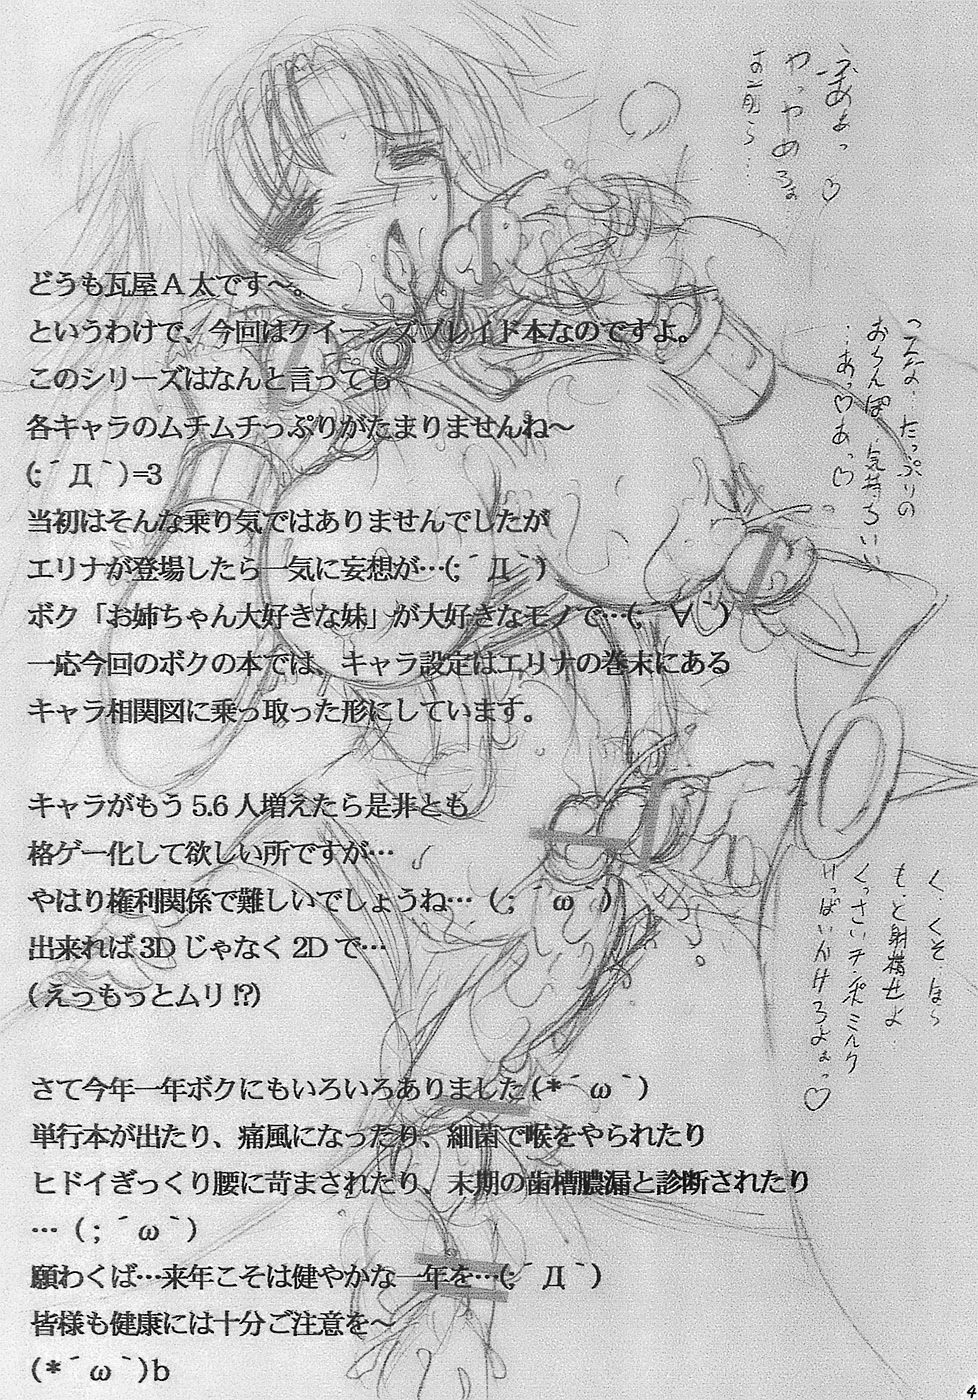 どうも瓦屋A太です～。
というわけで、今回はクイーンズブレイド本なのですよ。
このシリーズはなんと言っても
各キャラのムチムチっぷりがたまりませんね～
(;´Д｀)=3
当初はそんな乗り気ではありませんでしたが
エリナが登場したら一気に妄想が…(;´Д｀)
ボク「お姉ちゃん大好きな妹」が大好きなモノで…(;´∀｀)
一応今回のボクの本では、キャラ設定はエリナの巻末にある
キャラ相関図に乗っ取った形にしています。
キャラがもう5.6人増えたら是非とも
格ゲー化して欲しい所ですが…
やはり権利関係で難しいでしょうね…（;´ω｀）
出来れば3Dじゃなく2Dで…
(えっもっとムリ!?)
さて今年一年ボクにもいろいろありました(*´ω｀)
単行本が出たり、痛風になったり、細菌で喉をやられたり
ヒドイぎっくり腰に苛まされたり、末期の歯槽膿漏と診断されたり
…（;´ω｀）
願わくば…来年こそは健やかな一年を…(;´Д｀)
皆様も健康には十分ご注意を～
(*´ω｀)b
やっやめろぉ
こんな、たっぷりの
おちんぽ、気持ちいい
…あっ♡あっ♡
く、くそ、ほら
もっと射精せよ
くっさいチ・ポミルク
いっぱいかけろよぉっ♡
4